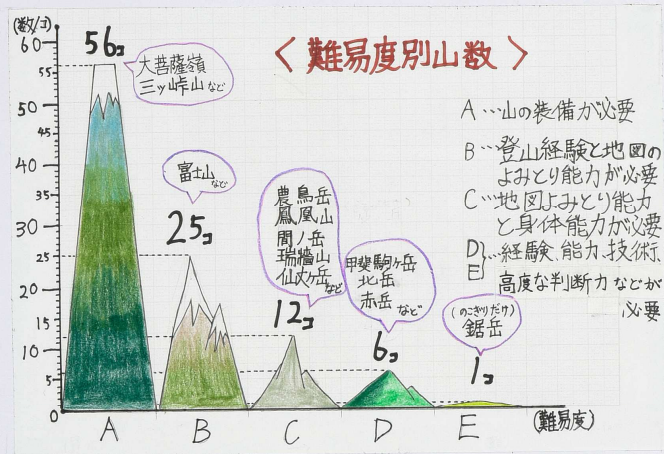 <難易度別山数>
(数/コ)
60
55
50
40
30
25
20
12
10
5
0
56コ
大菩薩嶺
三ッ峠山など
25コ
富士山
など
12コ
農鳥岳
鳳凰山
間ノ岳
瑞牆山
仙丈ヶ岳
など
6コ
甲斐駒ヶ岳
北岳
赤岳
など
1コ
(のこぎりだけ)
鋸岳
A…山の装備が必要
B…登山経験と地図の
よみとり能力が必要
C…地図よみとり能力
と身体能力が必要
D
E}…経験、能力、技術、
高度な判断力などが
必要
A B C D E (難易度)